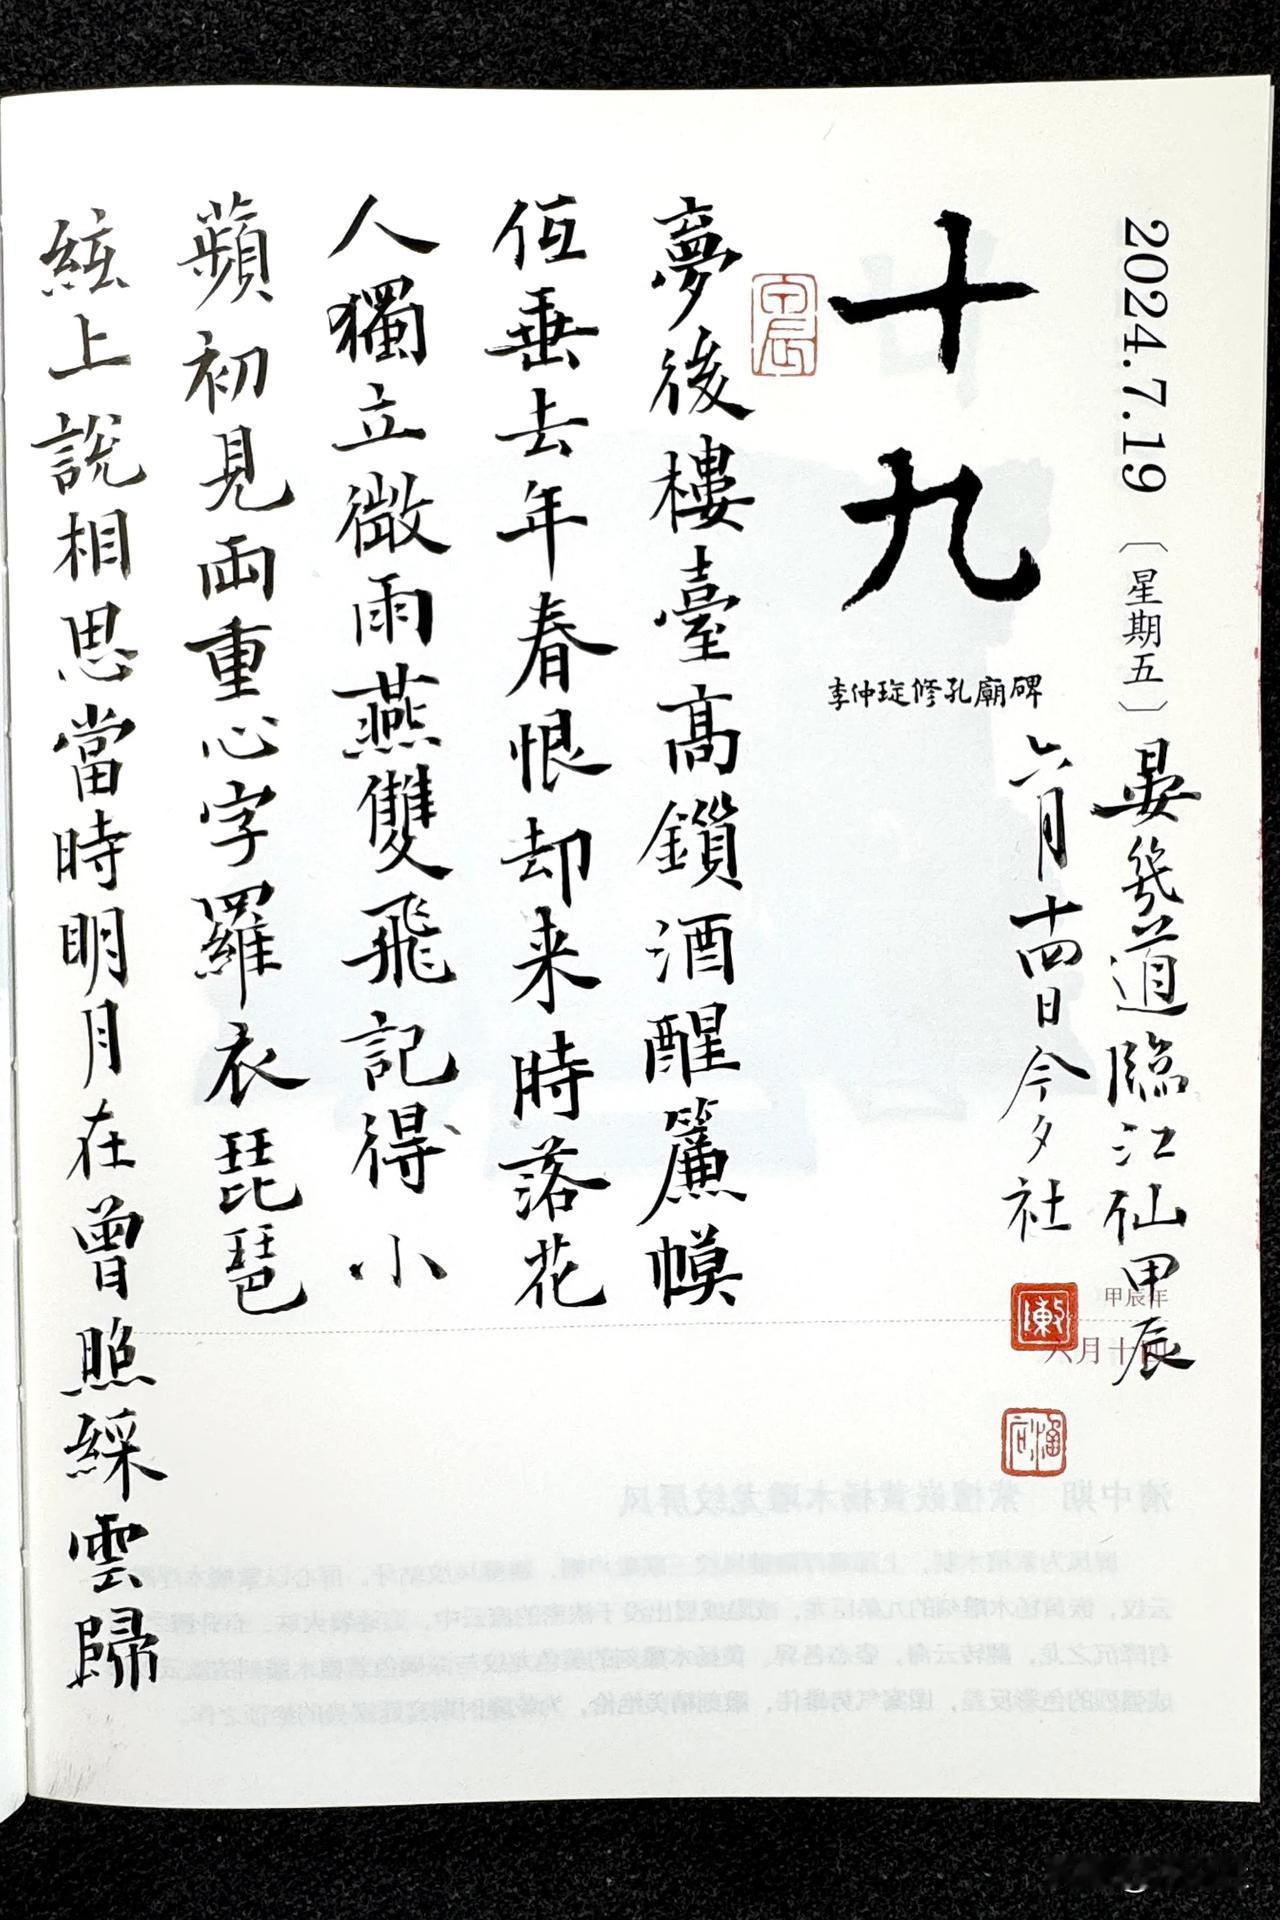 2024.7.19〔星期五〕
晏幾道臨江仙甲辰
六月十四日今夕社
十九
李仲璇修孔廟碑
夢後樓臺高鎖酒醒簾幙
低垂去年春恨却来時落花
人獨立微雨燕雙飛記得小
蘋初見両重心字羅衣琵琶
絃上說相思當時明月在曾照綵雲歸
甲辰年
六月十四